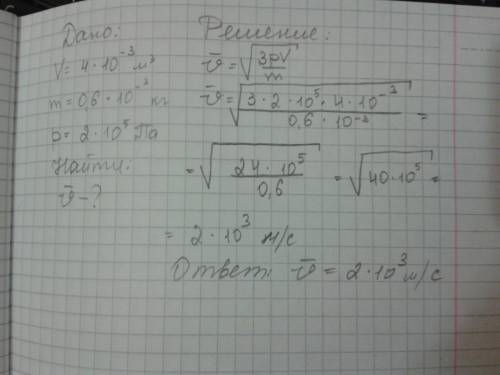 Дано:
V = 4·10⁻³ м³
m = 0,6·10⁻³ кг
p = 2·10⁵ Па
Найти:
v̄ - ?
Решение:
v̄ = √(3pV/m)
v̄ = √(3·2·10⁵·4·10⁻³/0,6·10⁻³) =
= √(24·10⁵/0,6) = √(40·10⁵) =
= 2·10³ м/с
Ответ: v̄ = 2·10³ м/с